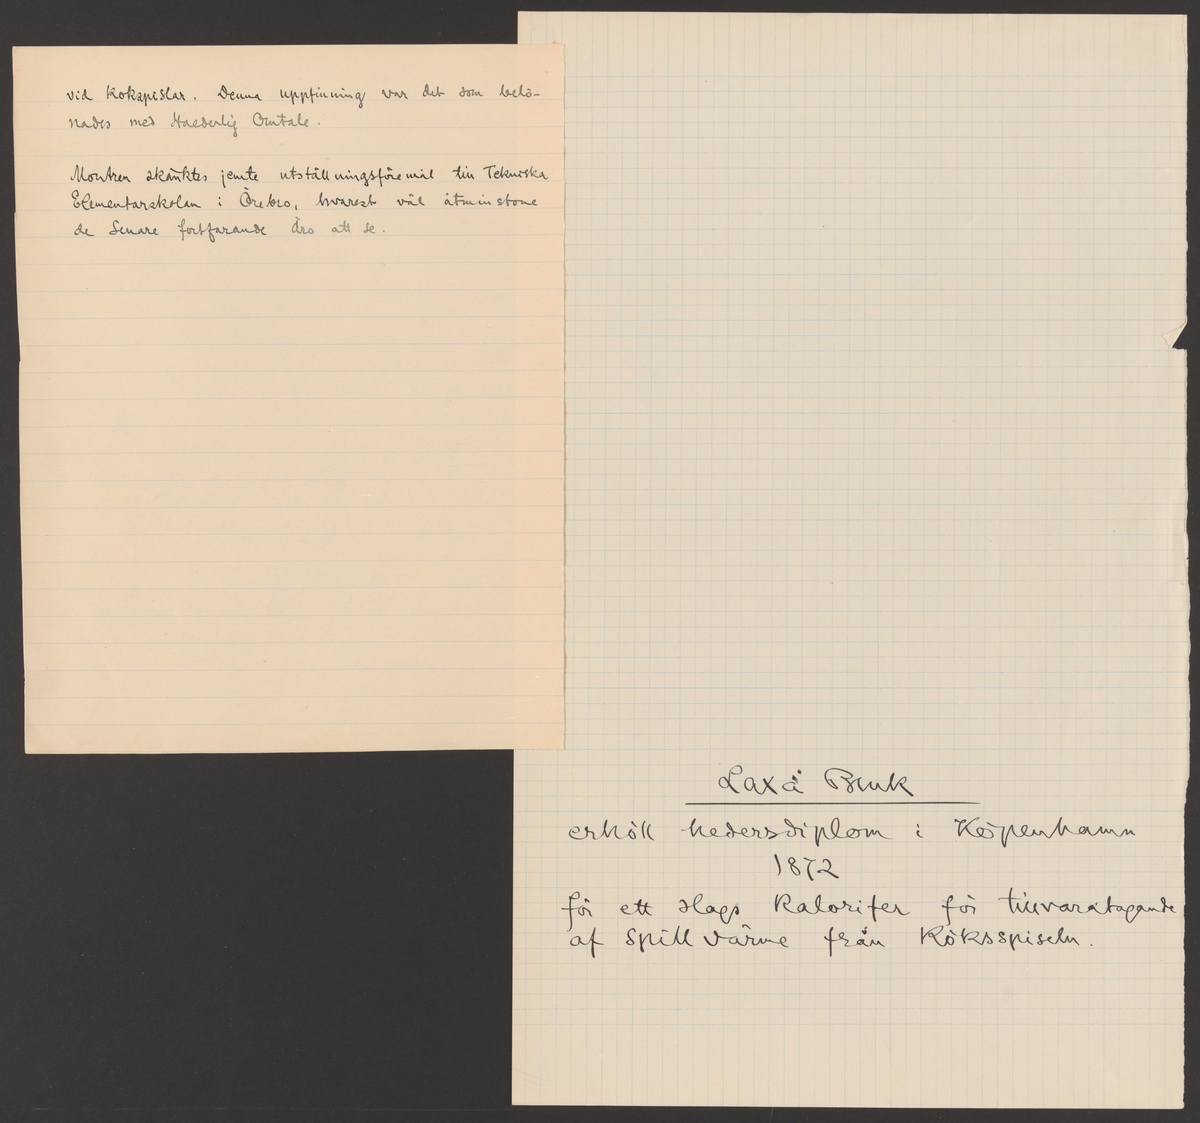 vid kokspislar. Denna uppfinning var det som belö-
nades med Haederlig Omtale.
Montren skänktes jemte utställningsföremål till Tekniska
Elementarskolan i Örebro, hvarest väl åtminstone
de senare fortfarande äro att se.
Laxå Bruk
erhöll hedersdiplom i Köpenhamn
1872
för ett slags Kalorifer för tillvaratagande
af spillvärme från Köksspiseln.